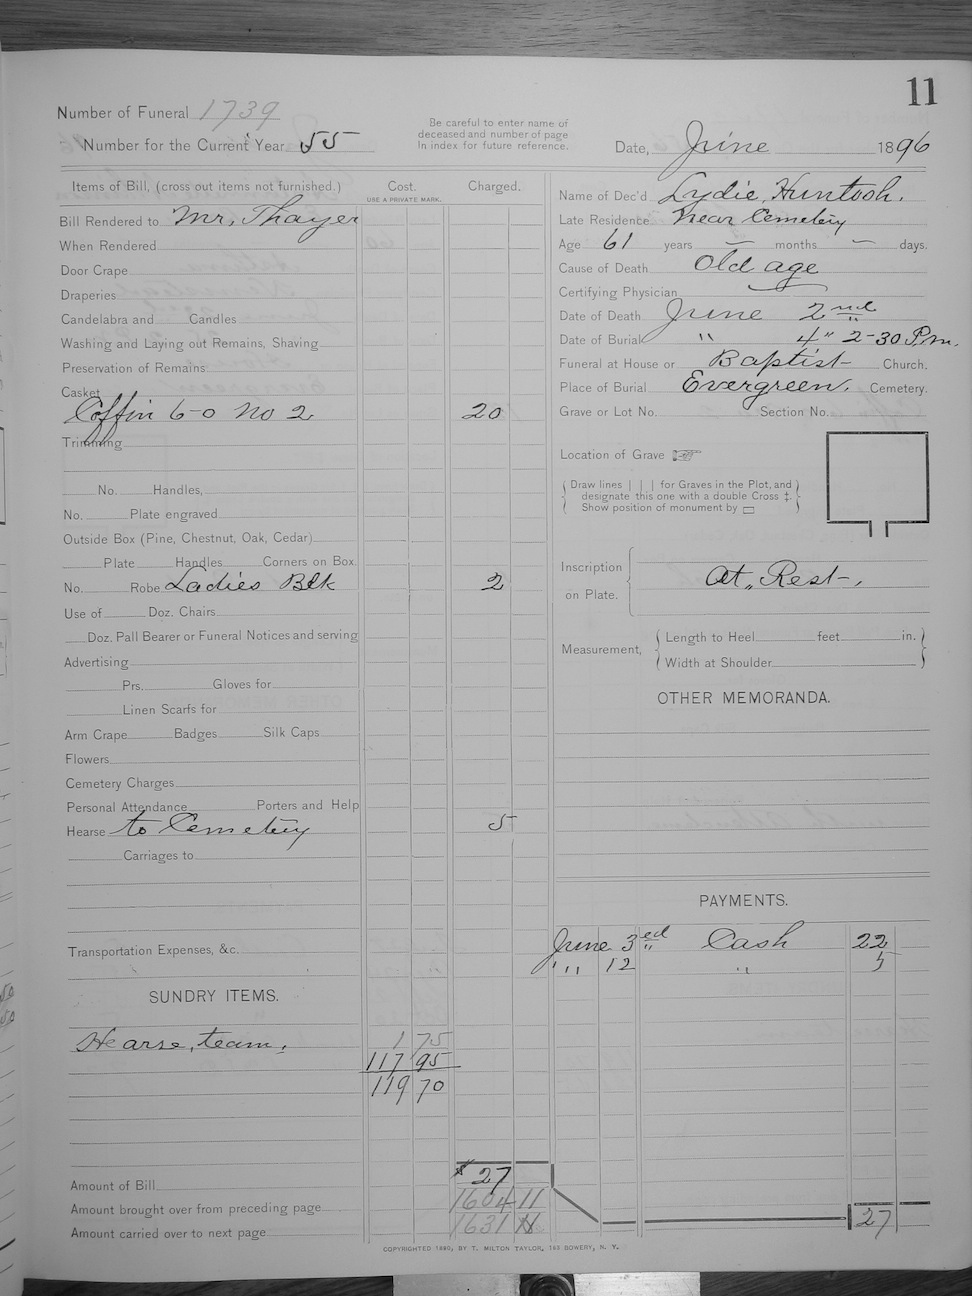 11
Number of Funeral 1739
Number for the Current Year 55
Be careful to enter name of
deceased and number of page
in index for future reference.
Date, June 1896
Items of Bill, (cross out items not furnished.) Cost. Charged.
USE A PRIVATE MARK.
Bill Rendered to Mr, Thayer
When Rendered
Door Crape
Draperies
Candelabra and Candles
Washing and Laying out Remains, Shaving
Preservation of Remains
Casket
Coffin 6-0 No 2 20
Trimming
No. Handles,
No. Plate engraved
Outside Box (Pine, Chestnut, Oak, Cedar)
Plate Handles Corners on Box
No. Robe Ladies Blk 2
Use of Doz. Chairs
Doz. Pall Bearer or Funeral Notices and serving
Advertising
Prs. Gloves for
Linen Scarfs for
Arm Crape Badges Silk Caps
Flowers
Cemetery Charges
Personal Attendance Porters and Help
Hearse to Cemetery 5
Carriages to
Transportation Expenses, &c.
SUNDRY ITEMS.
Hearse, team, 1 75
117 95
119 70
Amount of Bill $ 27
Amount brought over from preceding page 1604 11
Amount carried over to next page 1631 11
Name of Dec'd Lydie, Huntosh.
Late Residence Near Cemetery
Age 61 years — months — days.
Cause of Death Old age
Certifying Physician
Date of Death June 2nd
Date of Burial " 4" 2-30 P.m.
Funeral at House or Baptist Church.
Place of Burial Evergreen, Cemetery.
Grave or Lot No. Section No.
Location of Grave ☞
Draw lines | | | for Graves in the Plot, and
designate this one with a double Cross ‡.
Show position of monument by ▭
Inscription
on Plate. At, Rest,
Measurement, Length to Heel feet in.
Width at Shoulder
OTHER MEMORANDA.
PAYMENTS.
June 3ed Cash 22
" 12 " 5
27
COPYRIGHTED 1890, BY T. MILTON TAYLOR, 163 BOWERY, N. Y.